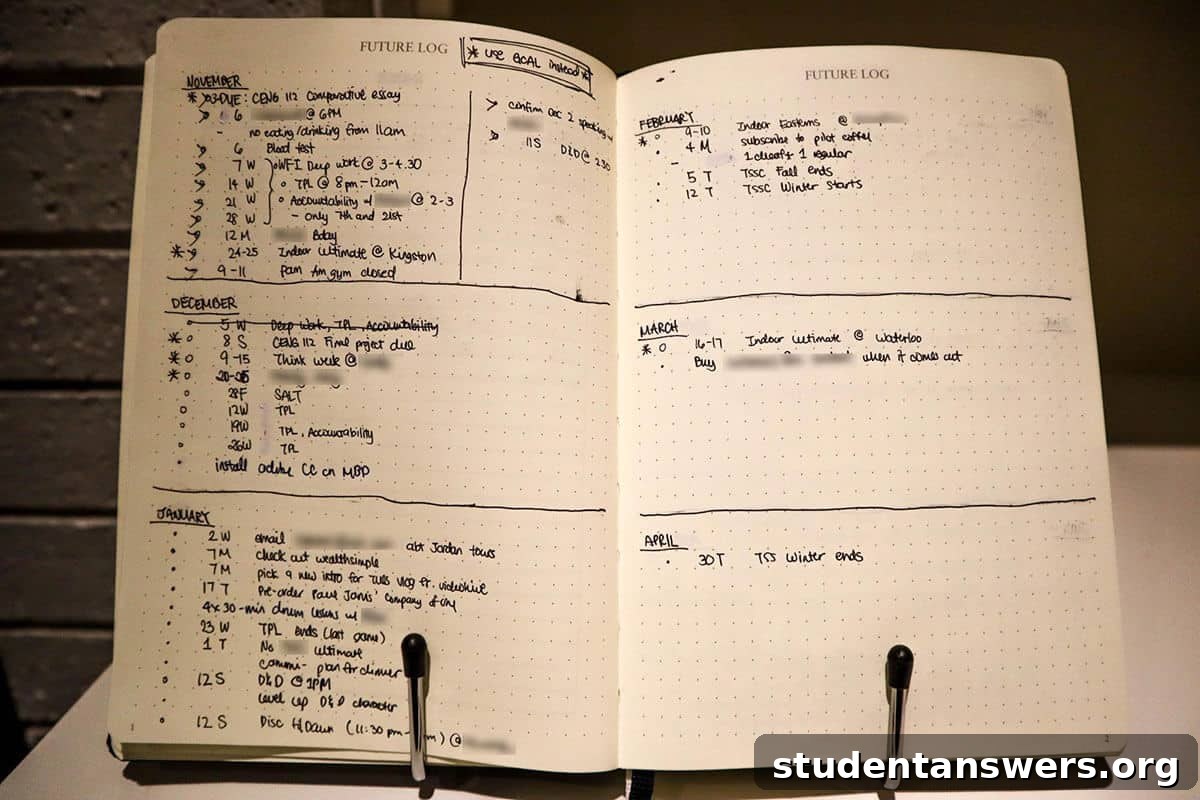 FUTURE LOG
* USE GCAL instead *
NOVEMBER
DUE: CENG 112 Comparative essay
6 @ 6PM
- no eating/drinking from 11am
6 Blood test
7 W WFI Deep work @ 3-4.30
14 W TPL @ 8pm-12am
21 W Accountability w/ @ 2-3
28 W - only 7th and 21st
12 M Bday
24-25 Indoor ultimate @ Kingston
9-11 Pam Am gym closed
confirm Dec 2 speaking
11S D&D @ 230
DECEMBER
5 W Deep work, TPL, Accountability
8 S CENG 112 Final project due
9-15 Think week @
28F SALT
12W TPL
19W TPL, Accountability
26W TPL
install adobe CC on MBP
JANUARY
2 W email abt Jordan tours
7M check out wealthsimple
7M pick a new intro for vlog fr. videohive
17 T Pre-order Paul Jarvis' company of only
4x 30-min drum lessons w/
23 W TPL ends (last game)
1 T No ultimate
plan for dinner
12 S D&D @ 1PM
Level up D&D character
12 S Disc til Dawn (11:30 pm- ) @
FUTURE LOG
FEBRUARY
9-10 Indoor Easterns @
4 M subscribe to pilot coffee
- 1 decaf + 1 regular
5 T TSSC Fall ends
12 T TSSC Winter starts
MARCH
16-17 Indoor ultimate @ Waterloo
Buy when it comes out
APRIL
30T TSS Winter ends
2
studentanswers.org